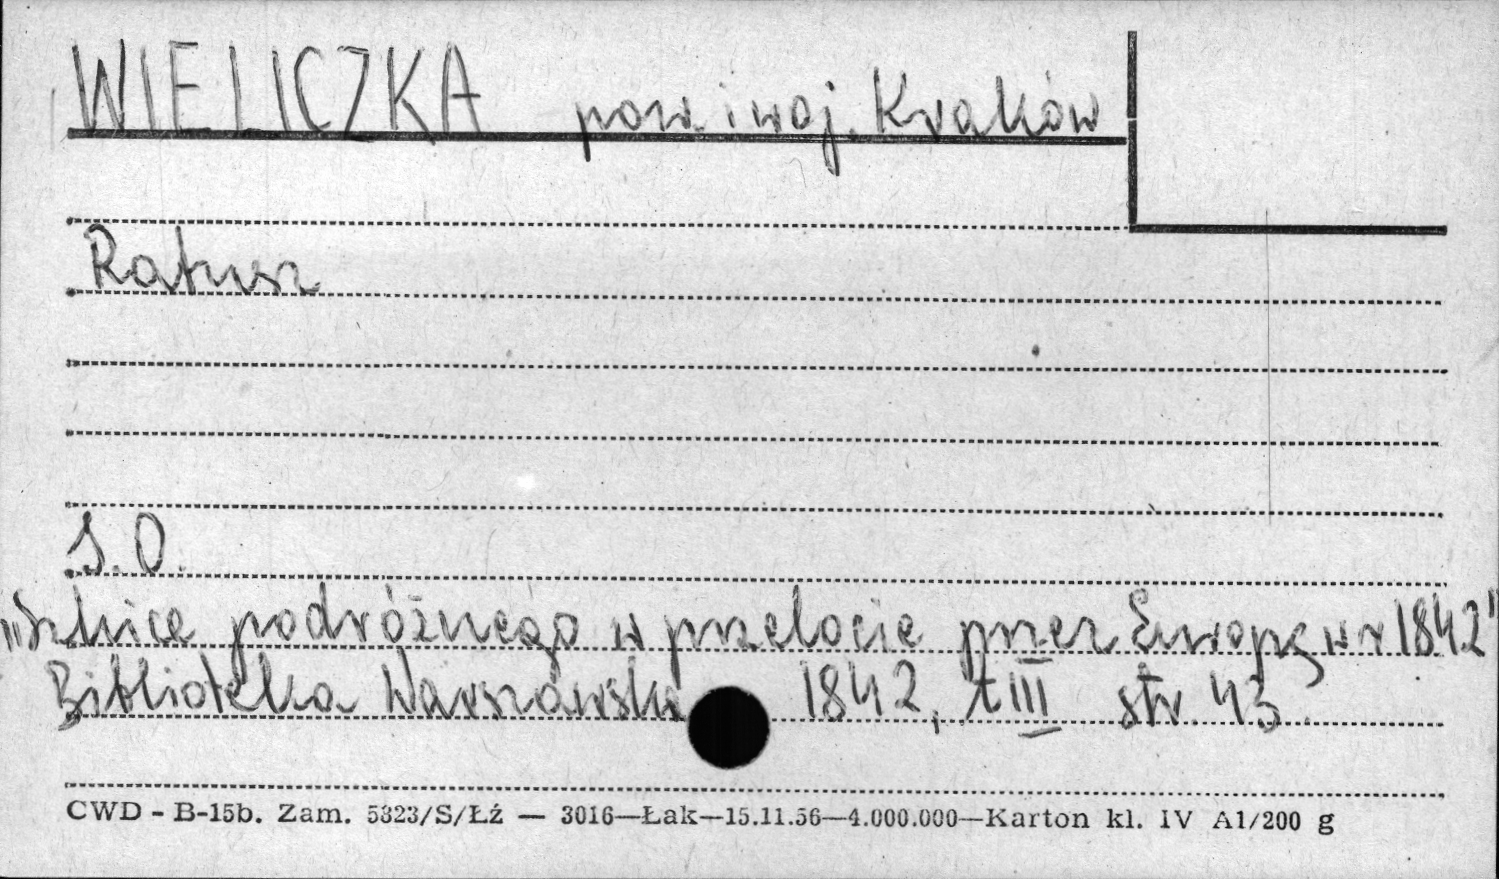 WIELICZKA pow. i woj. Kraków
Ratusz
S. O.
„Szkice podróżnego w przelocie przez Europę w r 1842"
Biblioteka Warszawska 1842, t III str. 43.
CWD - B-15b. Zam. 5323/S/Łź — 3016—Łak—15.11.56—4.000.000—Karton kl. IV A1/200 g